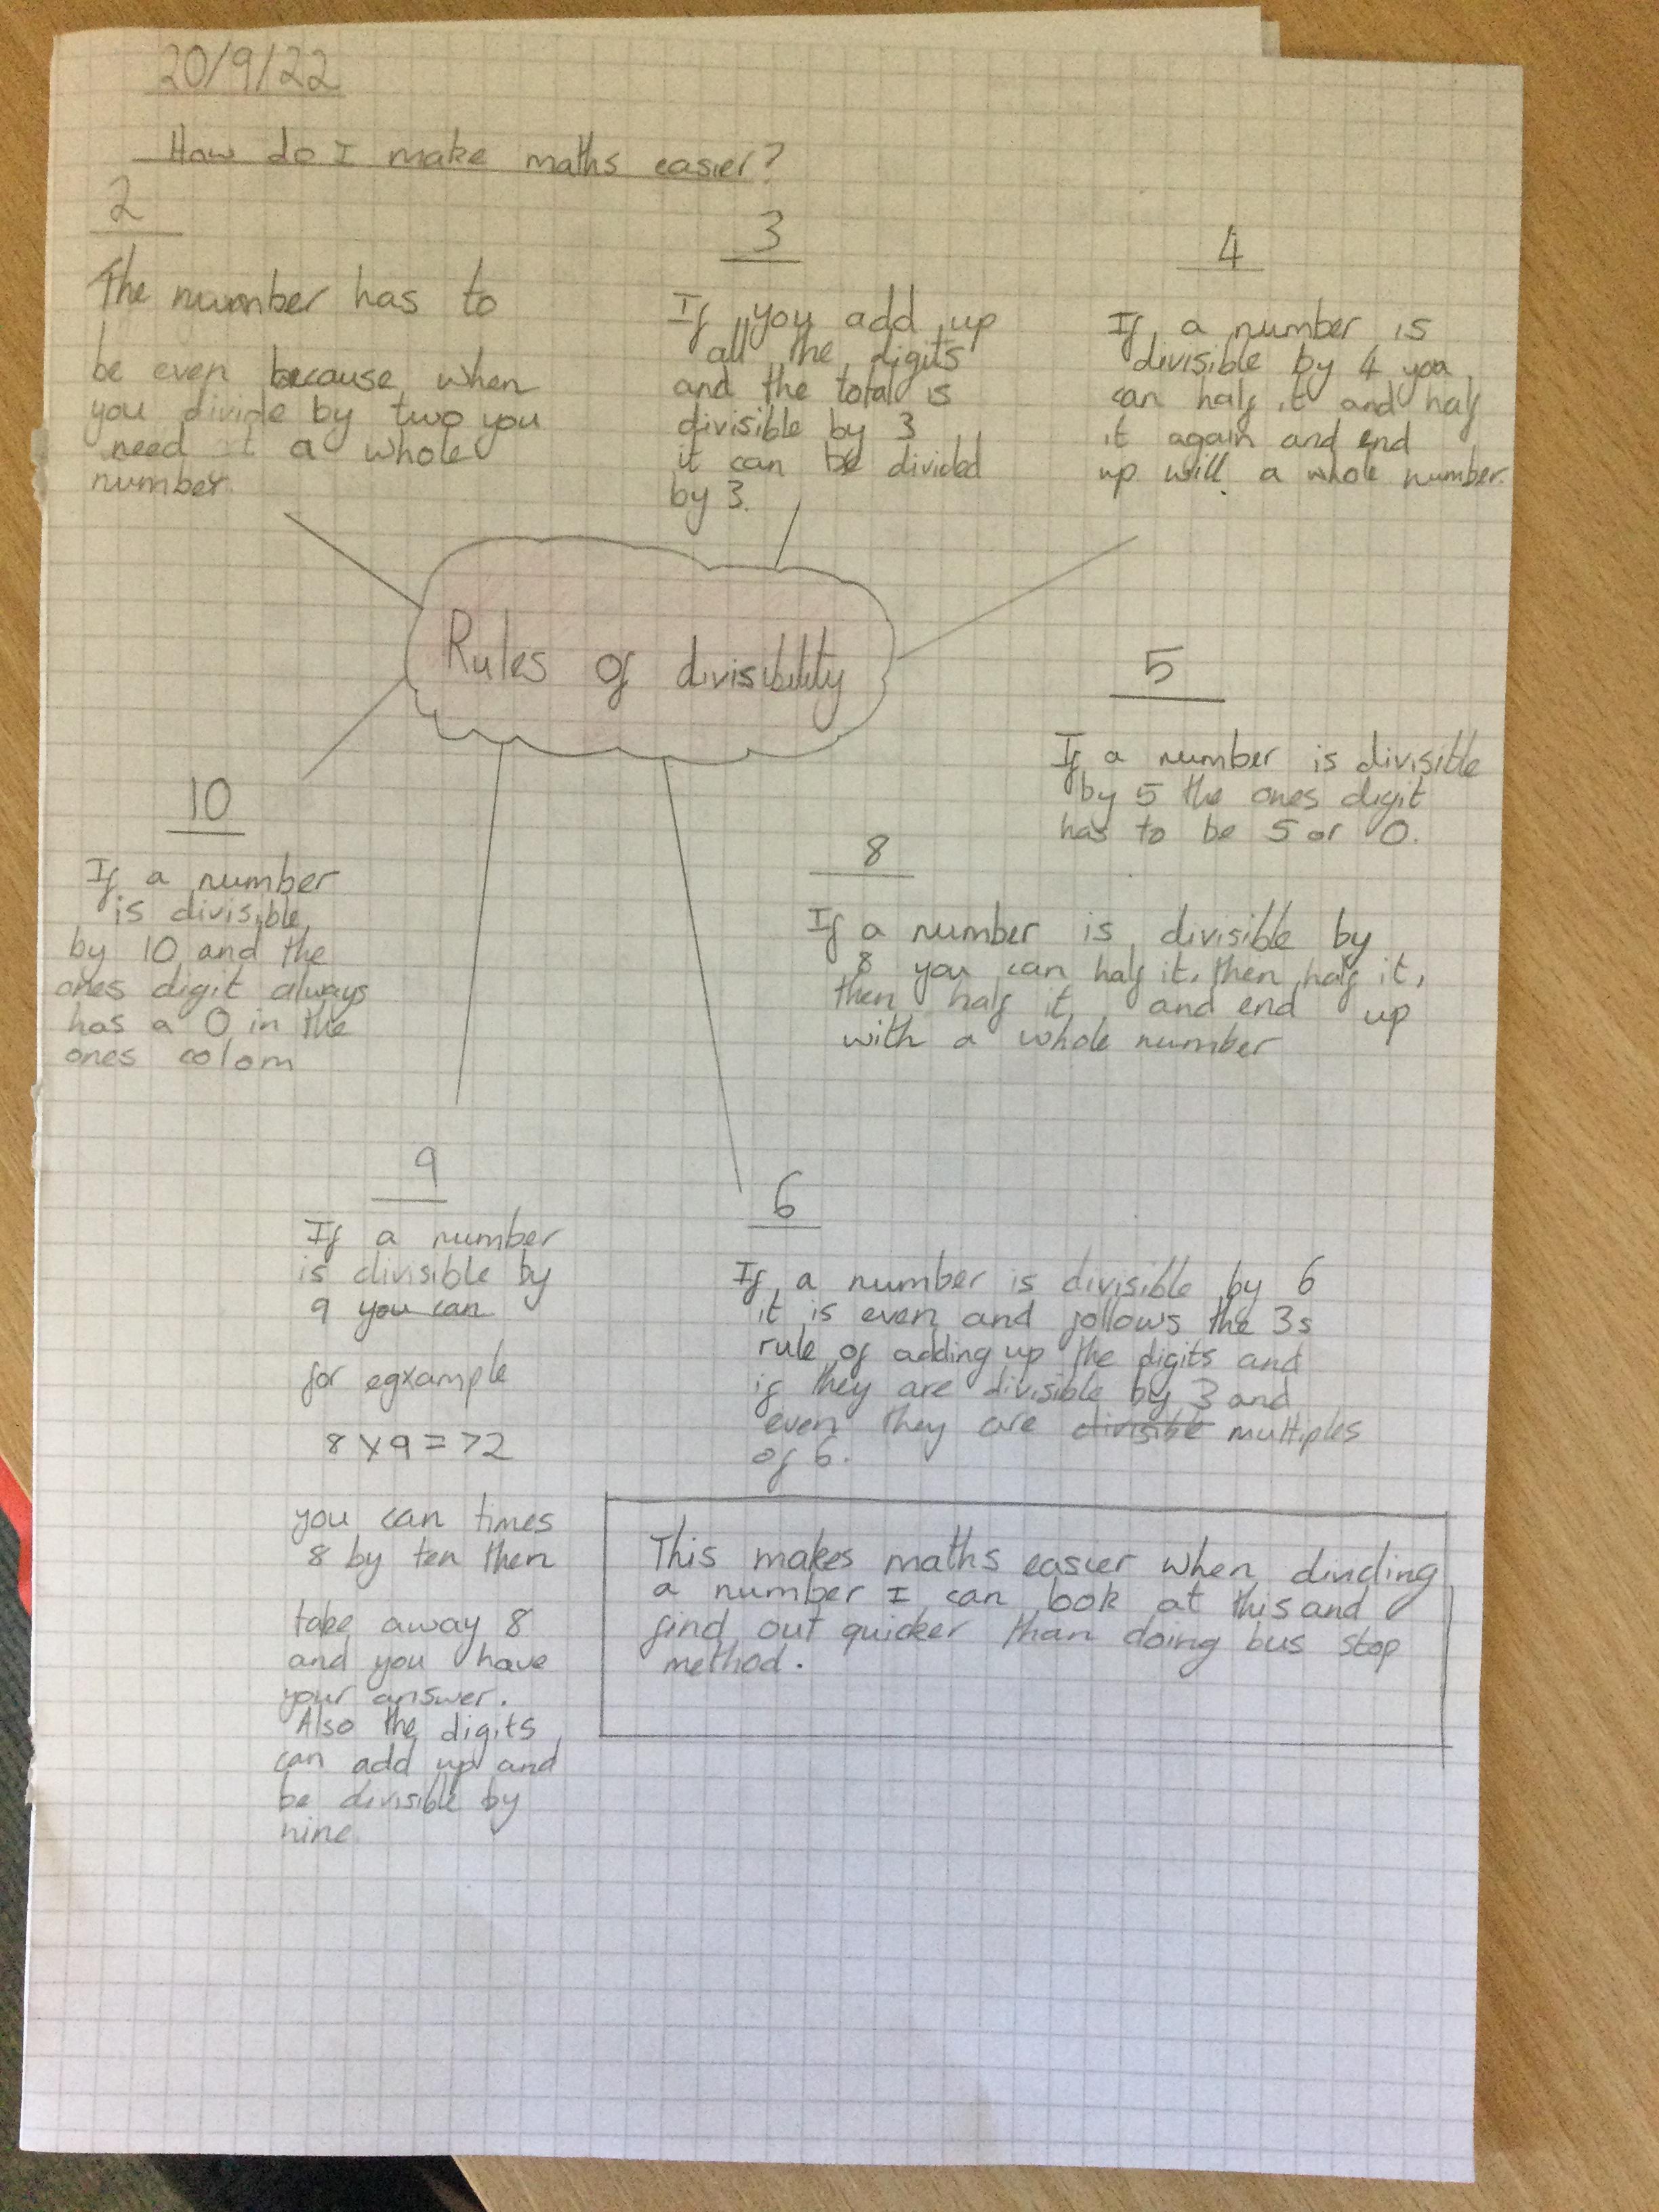 20/9/22
How do I make maths easier?
2
The number has to
be even because when
you divide by two you
need a whole
number.
3
If you add up
all the digits
and the total is
divisible by 3
it can be divided
by 3.
4
If a number is
divisible by 4 you
can half it and half
it again and end
up will a whole number.
Rules of divisibility
5
If a number is divisible
by 5 the ones digit
has to be 5 or 0.
8
If a number is divisible by
8 you can half it, then half it,
then half it, and end up
with a whole number
10
If a number
is divisible
by 10 and the
ones digit always
has a 0 in the
ones colom
9
If a number
is divisible by
9 you can
for egxample
8 x 9 = 72
you can times
8 by ten then
take away 8
and you have
your answer.
Also the digits
can add up and
be divisible by
nine
6
If a number is divisible by 6
it is even and follows the 3s
rule of adding up the digits and
if they are divisible by 3 and
even they are divisible multiples
of 6.
This makes maths easier when dividing
a number I can look at this and
find out quicker than doing bus stop
method.